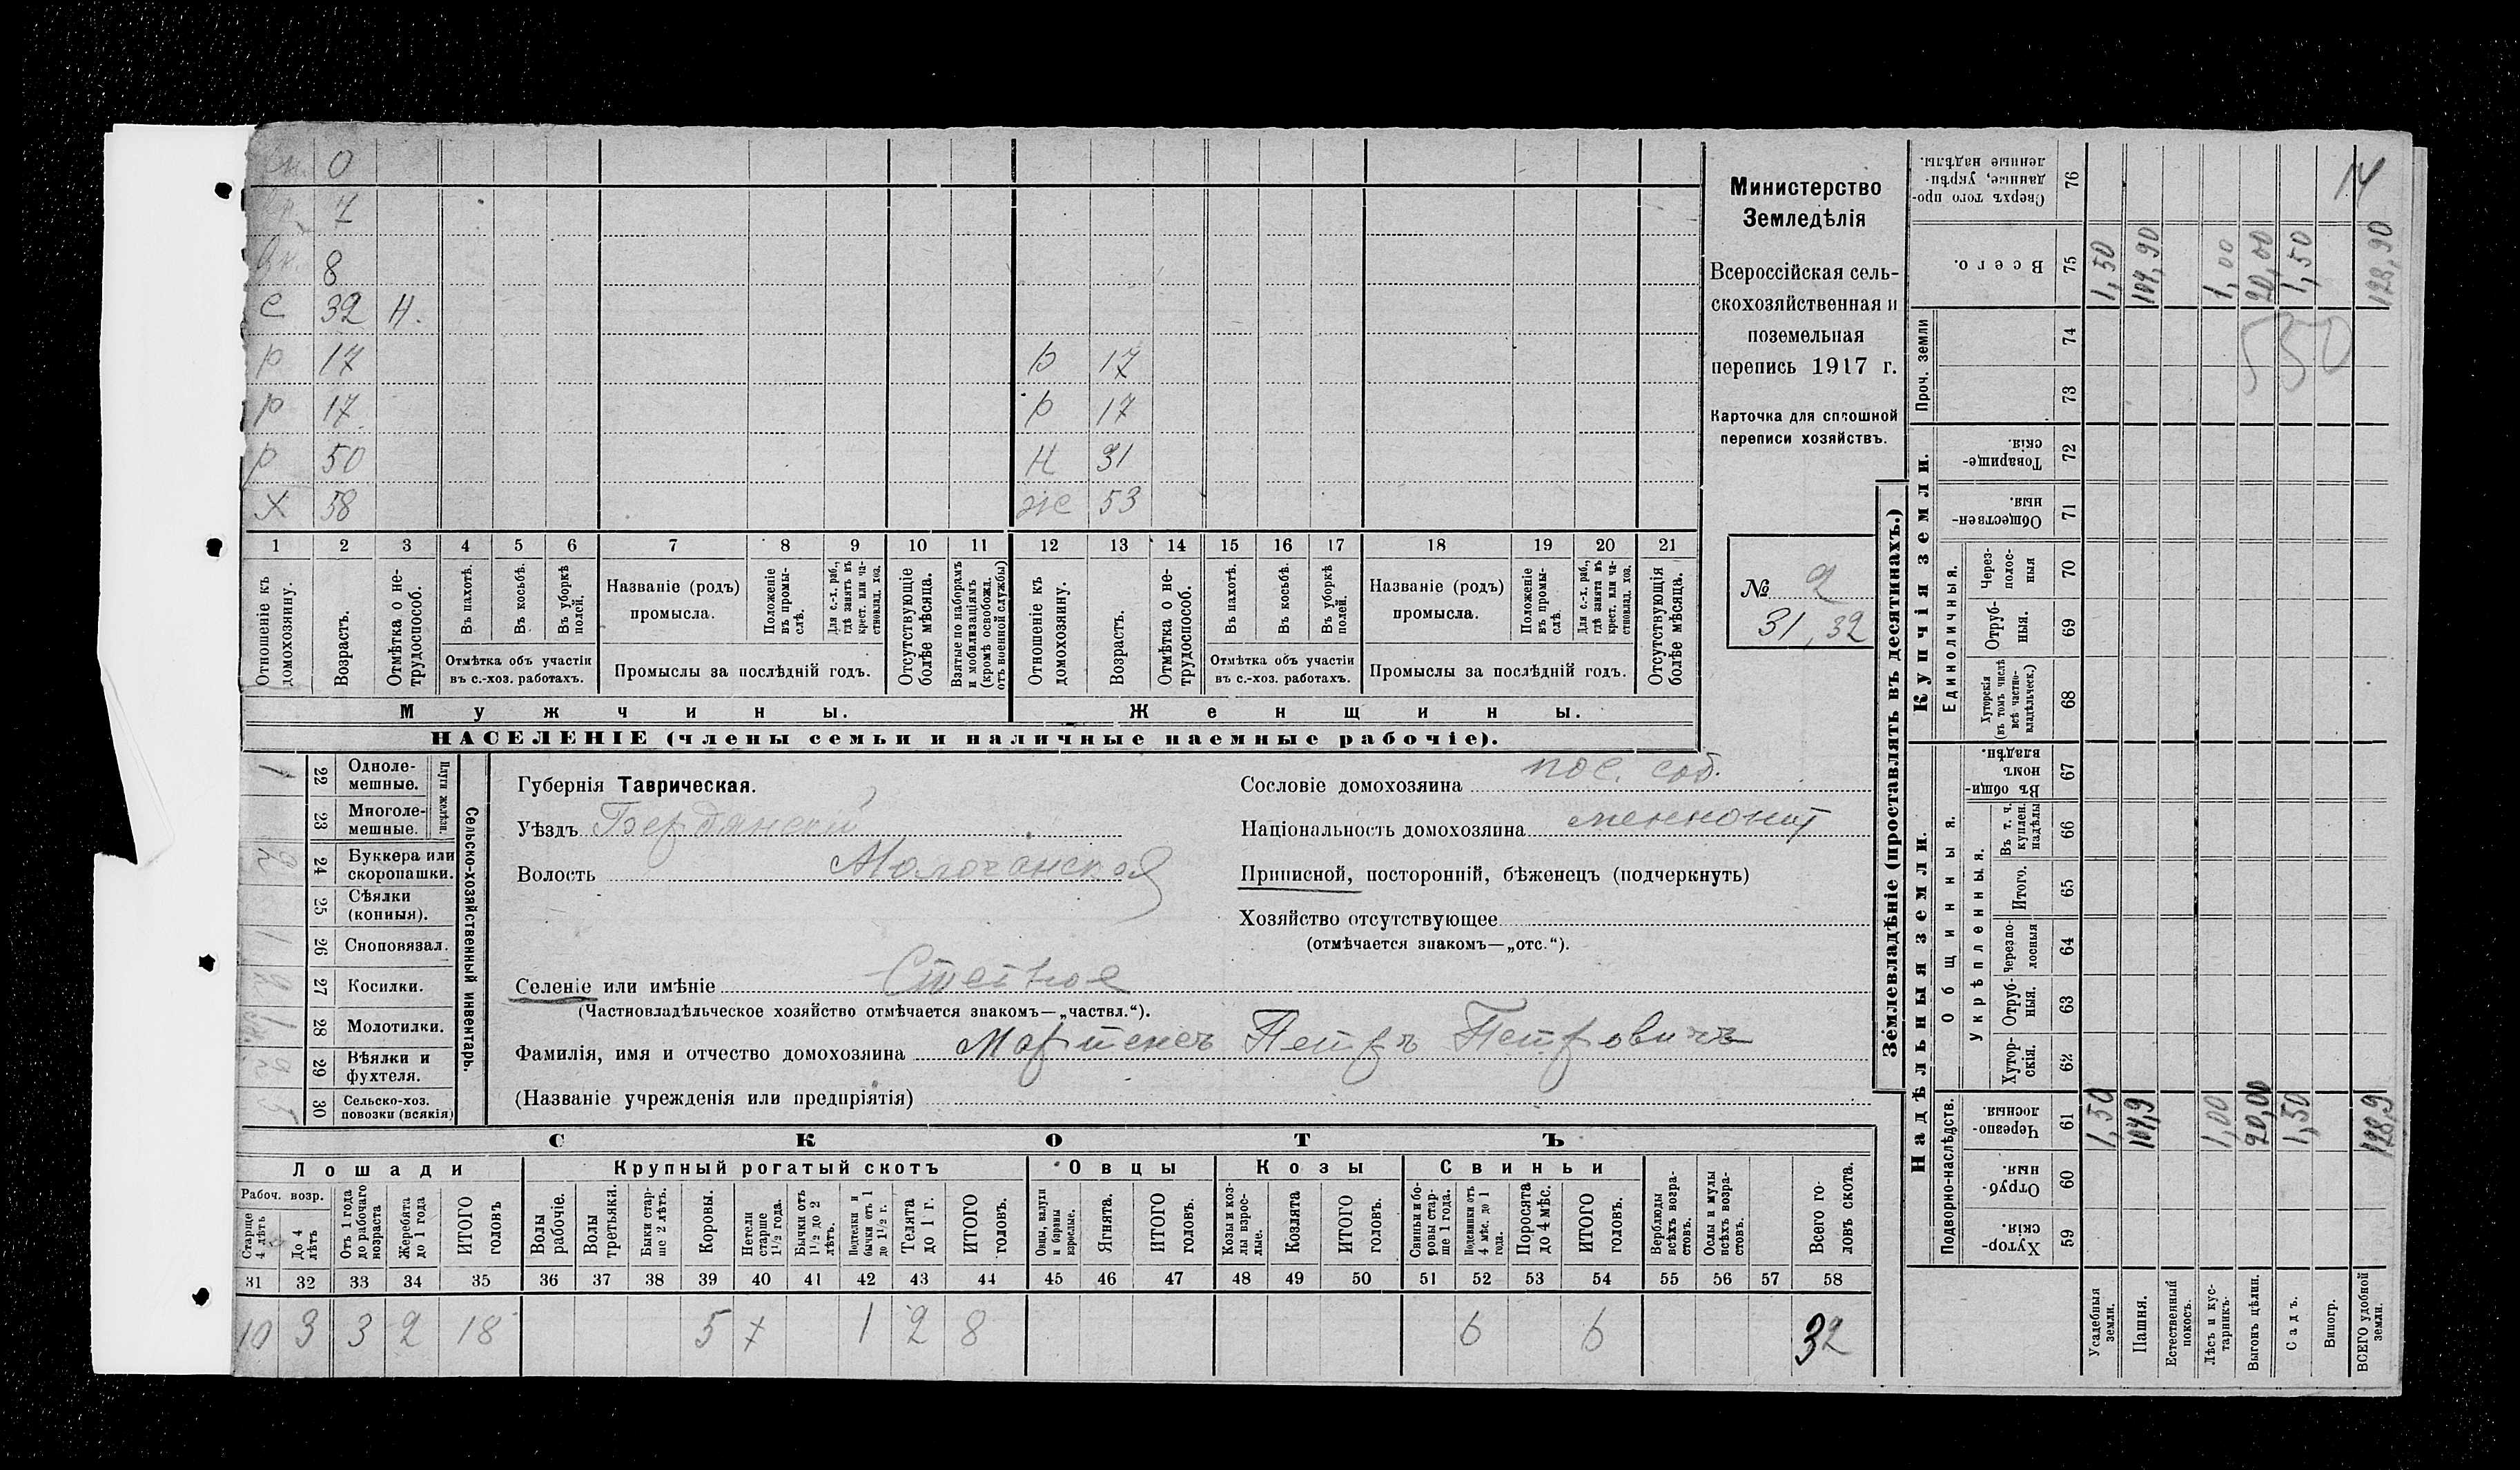 14
вн. 0
вн. 7
вн. 8
с 32 н.
р 17
р 17
р 50
х 58
р 17
р 17
н 31
же 53
1 2 3 4 5 6 7 8 9 10 11 12 13 14 15 16 17 18 19 20 21
Отношеніе къ домохозяину.
Возрастъ.
Отмѣтка о не-
трудоспособ.
Въ пахотѣ.
Въ косьбѣ.
Въ уборкѣ полей.
Отмѣтка объ участіи
въ с.-хоз. работахъ.
Названіе (родъ)
промысла.
Положеніе въ промы-
слѣ.
Для с.-х. раб.,
гдѣ занятъ въ
крест. или ча-
стновлад. хоз.
Промыслы за послѣдній годъ.
Отсутствующіе
болѣе мѣсяца.
Взятые по наборамъ
и мобилизаціямъ
(кромѣ освобожд.
отъ военной службы)
Отношеніе къ
домохозяину.
Возрастъ.
Отмѣтка о не-
трудоспособ.
Въ пахотѣ.
Въ косьбѣ.
Въ уборкѣ полей.
Отмѣтка объ участіи
въ с.-хоз. работахъ.
Названіе (родъ)
промысла.
Положеніе въ промы-
слѣ.
Для с.-х. раб.,
гдѣ занята въ
крест. или ча-
стновлад. хоз.
Промыслы за послѣдній годъ.
Отсутствующія
болѣе мѣсяца.
Мужчины.
Женщины.
НАСЕЛЕНІЕ (члены семьи и наличные наемные рабочіе).
Министерство
Земледѣлія
Всероссійская сель-
скохозяйственная и
поземельная
перепись 1917 г.
Карточка для сплошной
переписи хозяйствъ.
№ 2
31, 32
Сельско-хозяйственный инвентарь.
Плуги желѣзн.
22 Одноле-
мешные. 1
23 Многоле-
мешные.
24 Буккера или
скоропашки. 2
25 Сѣялки
(конныя).
26 Сноповязал. 1
27 Косилки. 2
28 Молотилки. 1
29 Вѣялки и
фухтеля. 2
30 Сельско-хоз.
повозки (всякія) 5
Губернія Таврическая.
Уѣздъ Бердянскій
Волость Молочанская
Селеніе или имѣніе
(Частновладѣльческое хозяйство отмѣчается знакомъ—„частвл.“).
Фамилія, имя и отчество домохозяина Мартенсъ Петръ Петровичъ
(Названіе учрежденія или предпріятія)
Сословіе домохозяина пос. соб.
Національность домохозяина меннонит
Приписной, посторонній, бѣженецъ (подчеркнуть)
Хозяйство отсутствующее
(отмѣчается знакомъ—„отс.“).
СКОТЪ
Лошади
Крупный рогатый скотъ
Овцы
Козы
Свиньи
Рабоч. возр.
Старше 4 лѣтъ
До 4 лѣтъ
Отъ 1 года
до рабочаго
возраста
Жеребята
до 1 года
ИТОГО
головъ
Волы
рабочіе.
Волы
третьяки.
Быки стар-
ше 2 лѣтъ.
Коровы.
Нетели
старше
1½ года.
Бычки отъ
1½ до 2
лѣтъ.
Подтелки и
бычки отъ 1
до 1½ г.
Телята
до 1 г.
ИТОГО
головъ.
Овцы, валухи
и бараны
взрослые.
Ягнята.
ИТОГО
головъ.
Козы и коз-
лы взрос-
лые.
Козлята
ИТОГО
головъ.
Свиньи и бо-
ровы стар-
ше 1 года.
Подсвинки отъ
4 мѣс. до 1
года.
Поросята
до 4 мѣс.
ИТОГО
головъ.
Верблюды
всѣхъ возра-
стовъ.
Ослы и мулы
всѣхъ возра-
стовъ.
Всего го-
ловъ скота.
31 32 33 34 35 36 37 38 39 40 41 42 43 44 45 46 47 48 49 50 51 52 53 54 55 56 57 58
10 3 3 2 18 5 х 1 2 8 6 6 32
Землевладѣніе (проставлять въ десятинахъ.)
Купчія земли.
Надѣльныя земли.
Сверхъ того про-
данные, укрѣп-
ленные надѣлы.
76
Всего.
75
1,50 104,90 1,00 20,00 1,50 128,90
Проч. земли
74
73
550
Товарище-
скія.
72
Обществен-
ныя.
71
Единоличныя.
Через-
полос-
ныя
70
Отруб-
ныя.
69
Хуторскія
(въ томъ числѣ
всѣ частно-
владѣльческ.)
68
Общинныя.
Въ общи-
номъ
владѣн.
67
Укрѣпленныя.
Въ т. ч.
куплен.
надѣлы
66
Итого.
65
Черезпо-
лосныя
64
Отруб-
ныя.
63
Хутор-
скія.
62
Подворно-наслѣдств.
Черезпо-
лосныя.
61
1,50 104,9 1,00 20,00 1,50 128,9
Отруб-
ныя.
60
Хутор-
скія.
59
Усадебныя
земли.
Пашня.
Естественный
покосъ.
Лѣсъ и кус-
тарникъ.
Выгонъ цѣлин.
Садъ.
Виногр.
ВСЕГО удобной
земли.